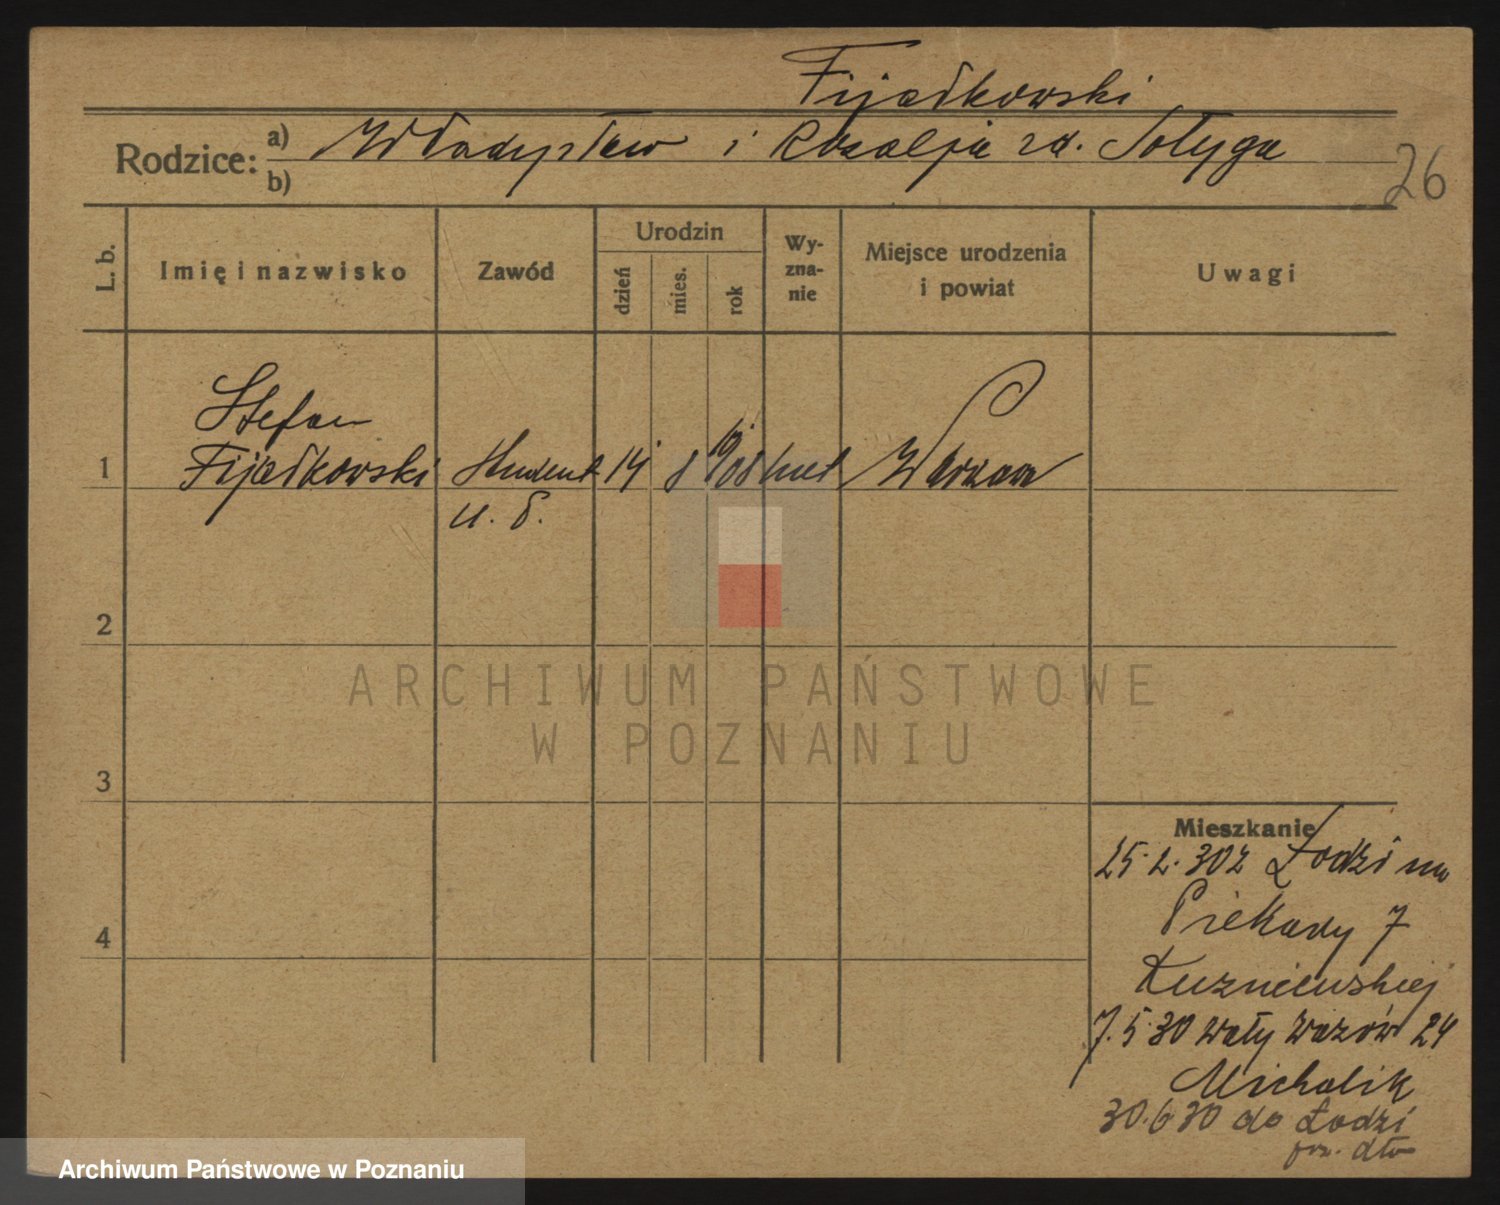 Fijałkowski
Rodzice: a) Władysław i Rozalja zd. Sołyga
b)
26
L. b.
Imię i nazwisko
Zawód
Urodzin
dzień
mies.
rok
Wy-
zna-
nie
Miejsce urodzenia
i powiat
Uwagi
Stefan
1 Fijałkowski Student 14 8 1908 Warszawa
u. P.
2
ARCHIWUM PAŃSTWOWE
W POZNANIU
3
Mieszkanie
25.2.30 z Łodzi na
Piekary 7
4
Kuzniewskiej
7.5.30 Wały Wazów 24
Michalik
30.6.30 do Łodzi
Archiwum Państwowe w Poznaniu